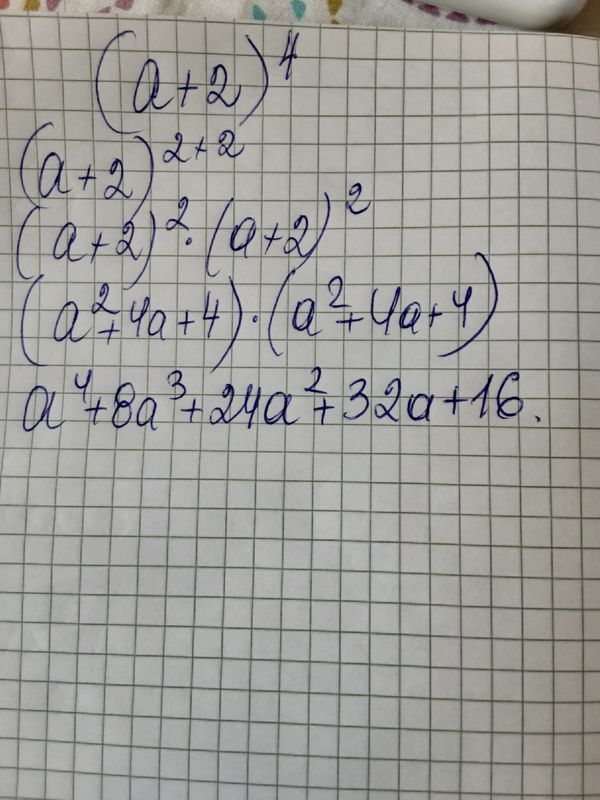 (a+2)⁴
(a+2)²⁺²
(a+2)²·(a+2)²
(a²+4a+4)·(a²+4a+4)
a⁴+8a³+24a²+32a+16.